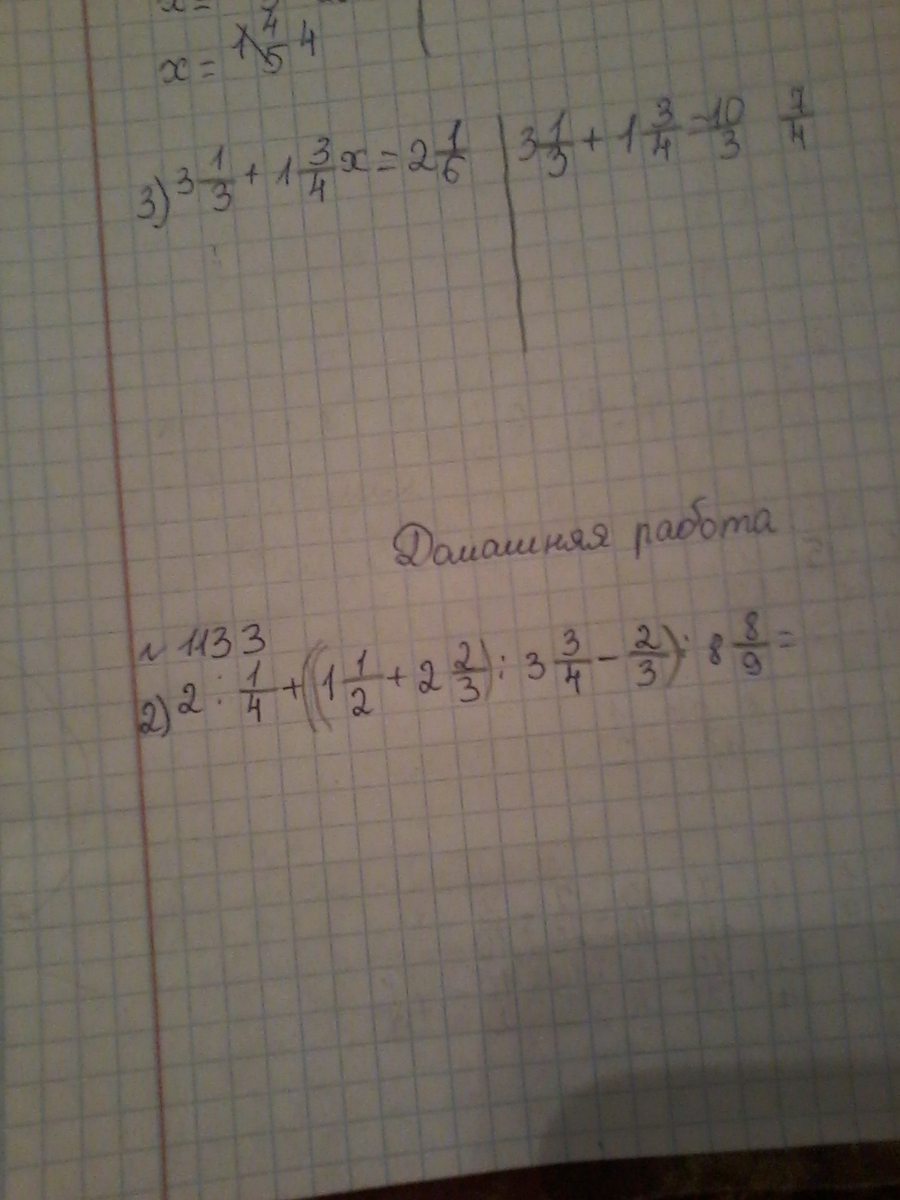 x =
x = 1 4/5 4
3) 3 1/3 + 1 3/4 x = 2 1/6
3 1/3 + 1 3/4 = 10/3 7/4
Домашняя работа
№ 1133
2) 2 : 1/4 + ((1 1/2 + 2 2/3) : 3 3/4 - 2/3) : 8 8/9 =